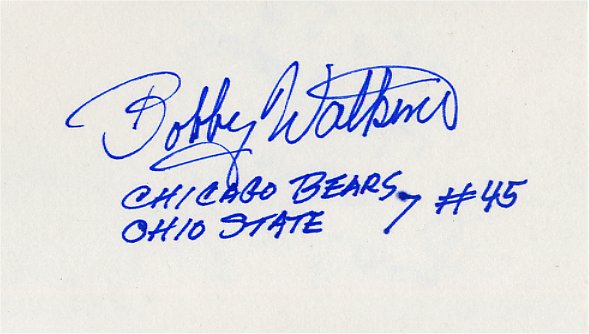 Bobby Watkins
CHICAGO BEARS, #45
OHIO STATE